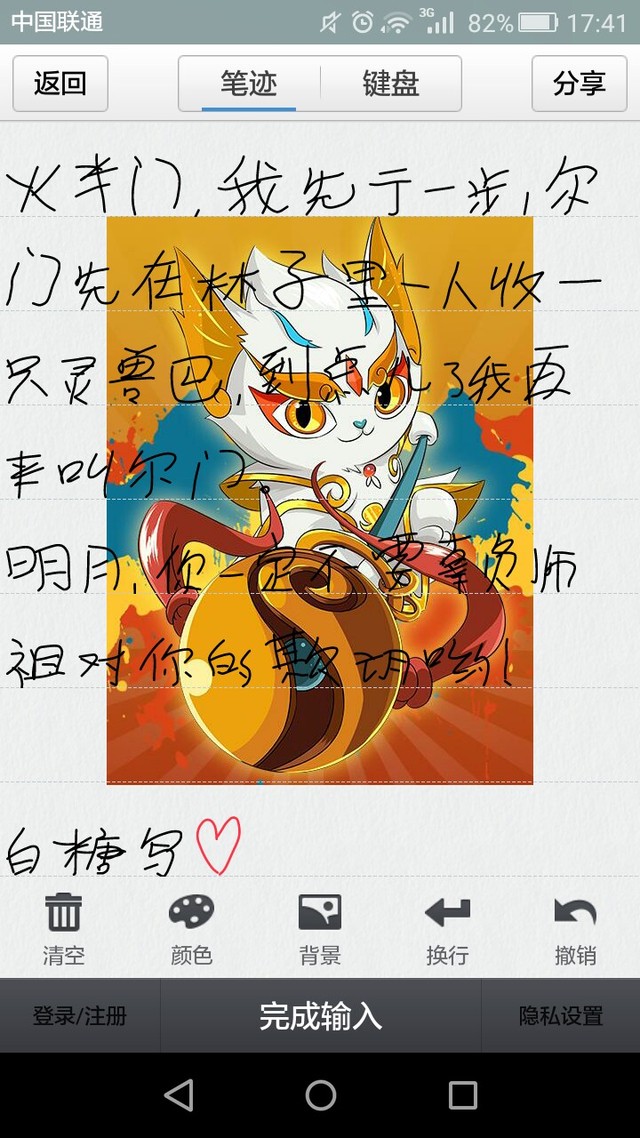 中国联通 3G 82% 17:41
返回 笔迹 键盘 分享
火半门,我先于一步,尔
门先在林子里一人收一
只灵兽巴,到点儿了我再
来叫尔门。
明月,你一定不要辜负师
祖对你的期功哟!
白糖写
清空 颜色 背景 换行 撤销
登录/注册 完成输入 隐私设置